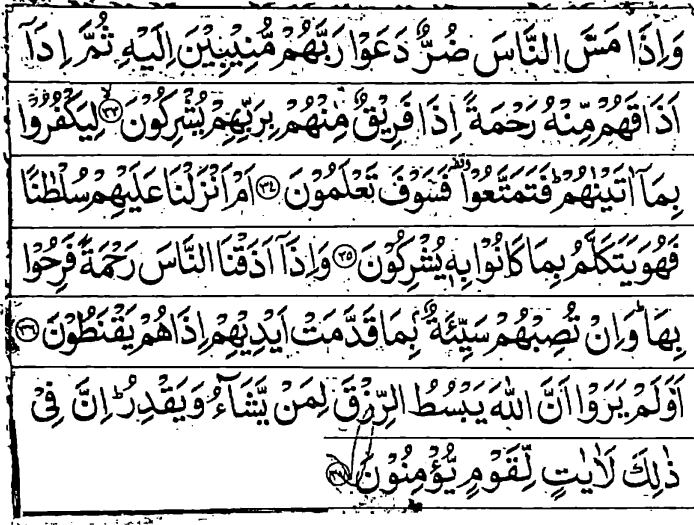 وَاِذَا مَسَّ النَّاسَ ضُرٌّ دَعَوْا رَبَّهُمْ مُّنِيْبِيْنَ اِلَيْهِ ثُمَّ اِذَآ
اَذَاقَهُمْ مِّنْهُ رَحْمَةً اِذَا فَرِيْقٌ مِّنْهُمْ بِرَبِّهِمْ يُشْرِكُوْنَ ۙ﴿۳۳﴾ لِيَكْفُرُوْا
بِمَآ اٰتَيْنٰهُمْ ؕ فَتَمَتَّعُوْا ۥ فَسَوْفَ تَعْلَمُوْنَ ﴿۳۴﴾ اَمْ اَنْزَلْنَا عَلَيْهِمْ سُلْطٰنًا
فَهُوَ يَتَكَلَّمُ بِمَا كَانُوْا بِهٖ يُشْرِكُوْنَ ﴿۳۵﴾ وَاِذَآ اَذَقْنَا النَّاسَ رَحْمَةً فَرِحُوْا
بِهَا ؕ وَاِنْ تُصِبْهُمْ سَيِّئَةٌۢ بِمَا قَدَّمَتْ اَيْدِيْهِمْ اِذَا هُمْ يَقْنَطُوْنَ ﴿۳۶﴾
اَوَلَمْ يَرَوْا اَنَّ اللّٰهَ يَبْسُطُ الرِّزْقَ لِمَنْ يَّشَآءُ وَيَقْدِرُ ؕ اِنَّ فِيْ
ذٰلِكَ لَاٰيٰتٍ لِّقَوْمٍ يُّؤْمِنُوْنَ ﴿۳۷﴾